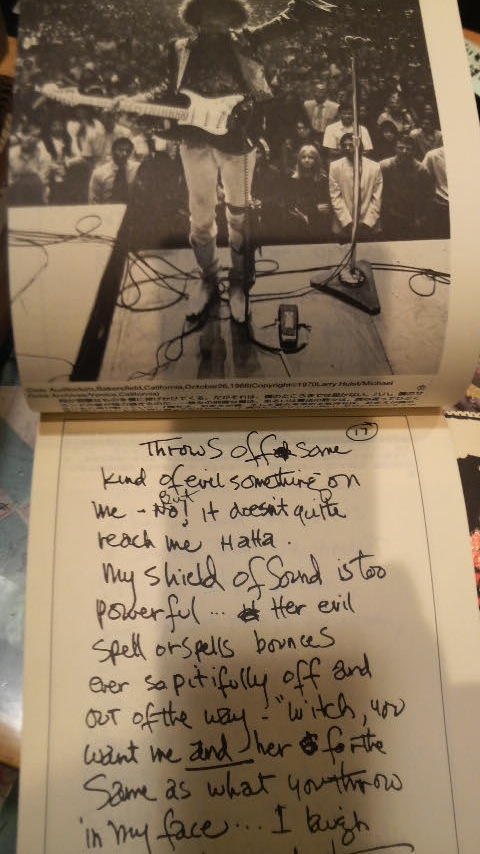 Civic Auditorium,Bakersfield,California,October26,1968(Copyright©1970Larry Hulst/Michael
Ochs Archives/Venice,California)
17
Throws off some
kind of evil something on
me - No! But it doesn't quite
reach me HaHa.
My shield of Sound is too
powerful ... Her evil
spell or spells bounces
ever so pitifully off and
out of the way - "Witch, you
want me and her for the
Same as what you throw
in my face ... I laugh